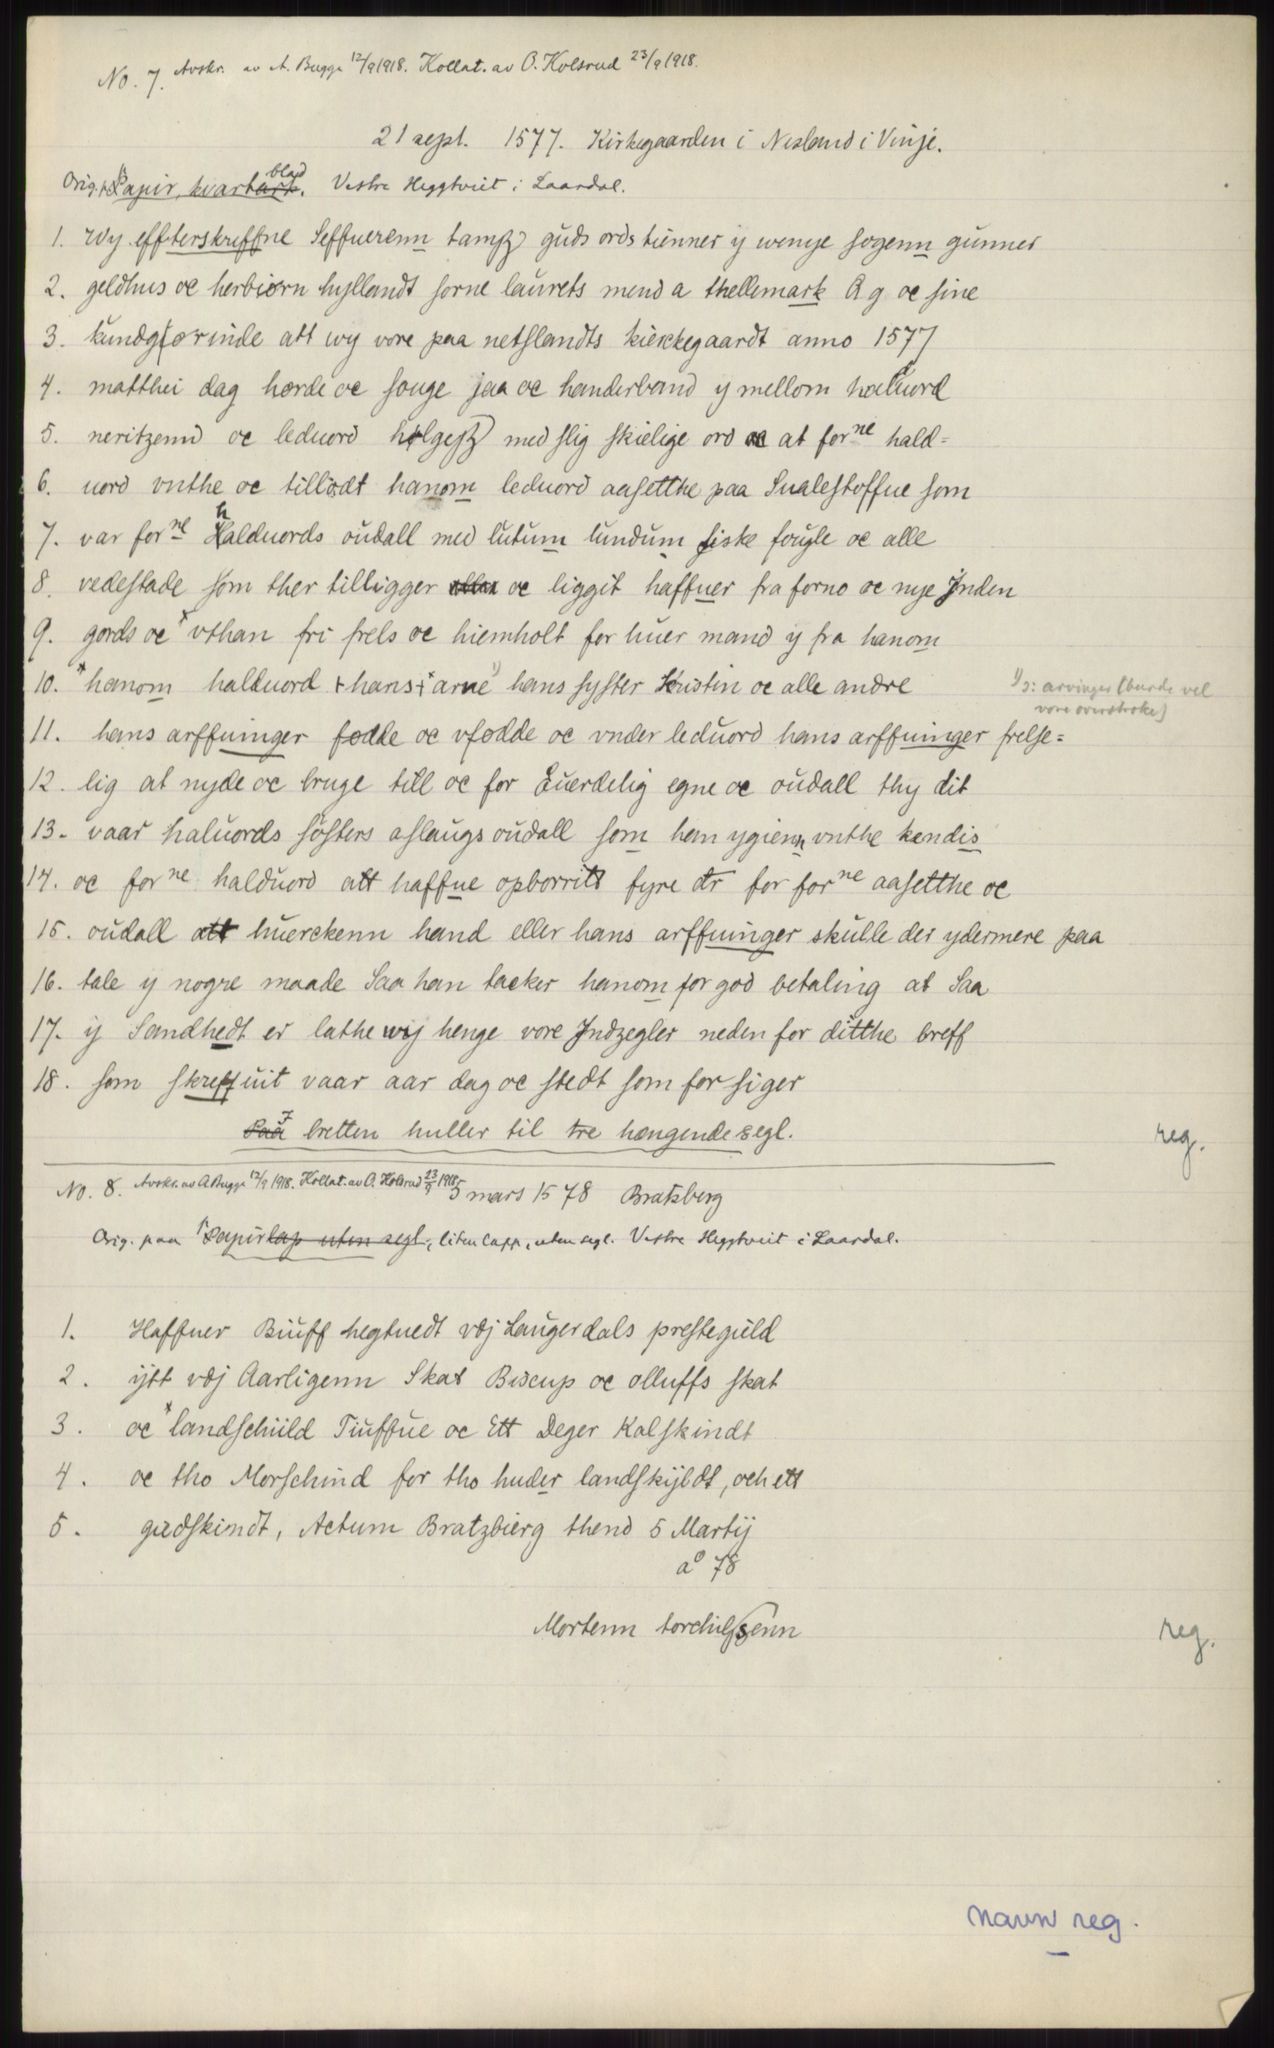 No. 7. Avskr. av A. Bugge 12/9 1918. Kollat. av O. Kolsrud 23/9 1918.
21 sept. 1577. Kirkegaarden i Nesland i Vinje.
Orig. Papir, kvartblad. Vestre Heggtveit i Laardal.
1. Wy effterskreffne Seffuerenn tamss guds ords tienner ij wenye sogenn gunner
2. geldhus oc herbiørn hyllandt sorne laurets mend a thellemark A g oc sine
3. kundgiørinde att wy vore paa netslandts kierckegaardt anno 1577
4. matthei dag hørde oc souge jaa oc handerband y mellom haluord
5. neritzend oc leduord helgess med slig skielige ord oc at forne hald=
6. uord vnthe oc tillødt hanom leduord aasetthe paa Sualestoffue som
7. var forne halduords oudall med lutum lundum fiske fougle oc alle
8. vedestade som ther tilligger oc liggit haffuer fra forno oc nye Jnden
9. gords oc * vthan fri frels oc hiemholt for huer mand y fra hanom
10. * hanom halduord + hans + * arue 1) hans syster Kristin oc alle andre
1) ɔ: arvinger (burde vel
være overstroket)
11. hans arffuinger fødde oc vfødde oc vnder leduord hans arffuinger frelse=
12. lig at nyde oc bruge till oc for Euerdelig egne oc oudall thy dit
13. vaar haluords søsters aslaugs oudall som han ygienn vnthe kendis
14. oc forne halduord att haffue opborrit fyre dr for forne aasetthe oc
15. oudall att huerckenn hand eller hans arffuinger skulle der ydermere paa
16. tale y nogre maade Saa han tacker hanom for god betaling at Saa
17. ij Sandhedt er lathe wij henge vore Jndzegler neden for ditthe breff
18. som skreffuit vaar aar dag oc stedt som for siger
Paa bretten huller til tre hængende segl.
reg.
No. 8. Avskr. av A. Bugge 12/9 1918. Kollat. av O. Kolsrud 23/9 1918. 5 mars 1578 Bratsberg
Orig. paa Papirlap uten segl, liten lapp, uten segl. Vestre Heggtveit i Laardal.
1. Haffuer Biuff hegtuedt vdj Laugerdals prestegield
2. ijtt vdj Aarligenn Skat Biscup oc olluffs skat
3. oc * landschiild Tiuffue oc Ett Deger Kalskindt
4. oc tho Morschind for tho huder landskijldt, och ett
5. giedskindt, Actum Bratzbierg thend 5 Martij
ao 78
Mortenn torchilssenn
reg.
navn reg.